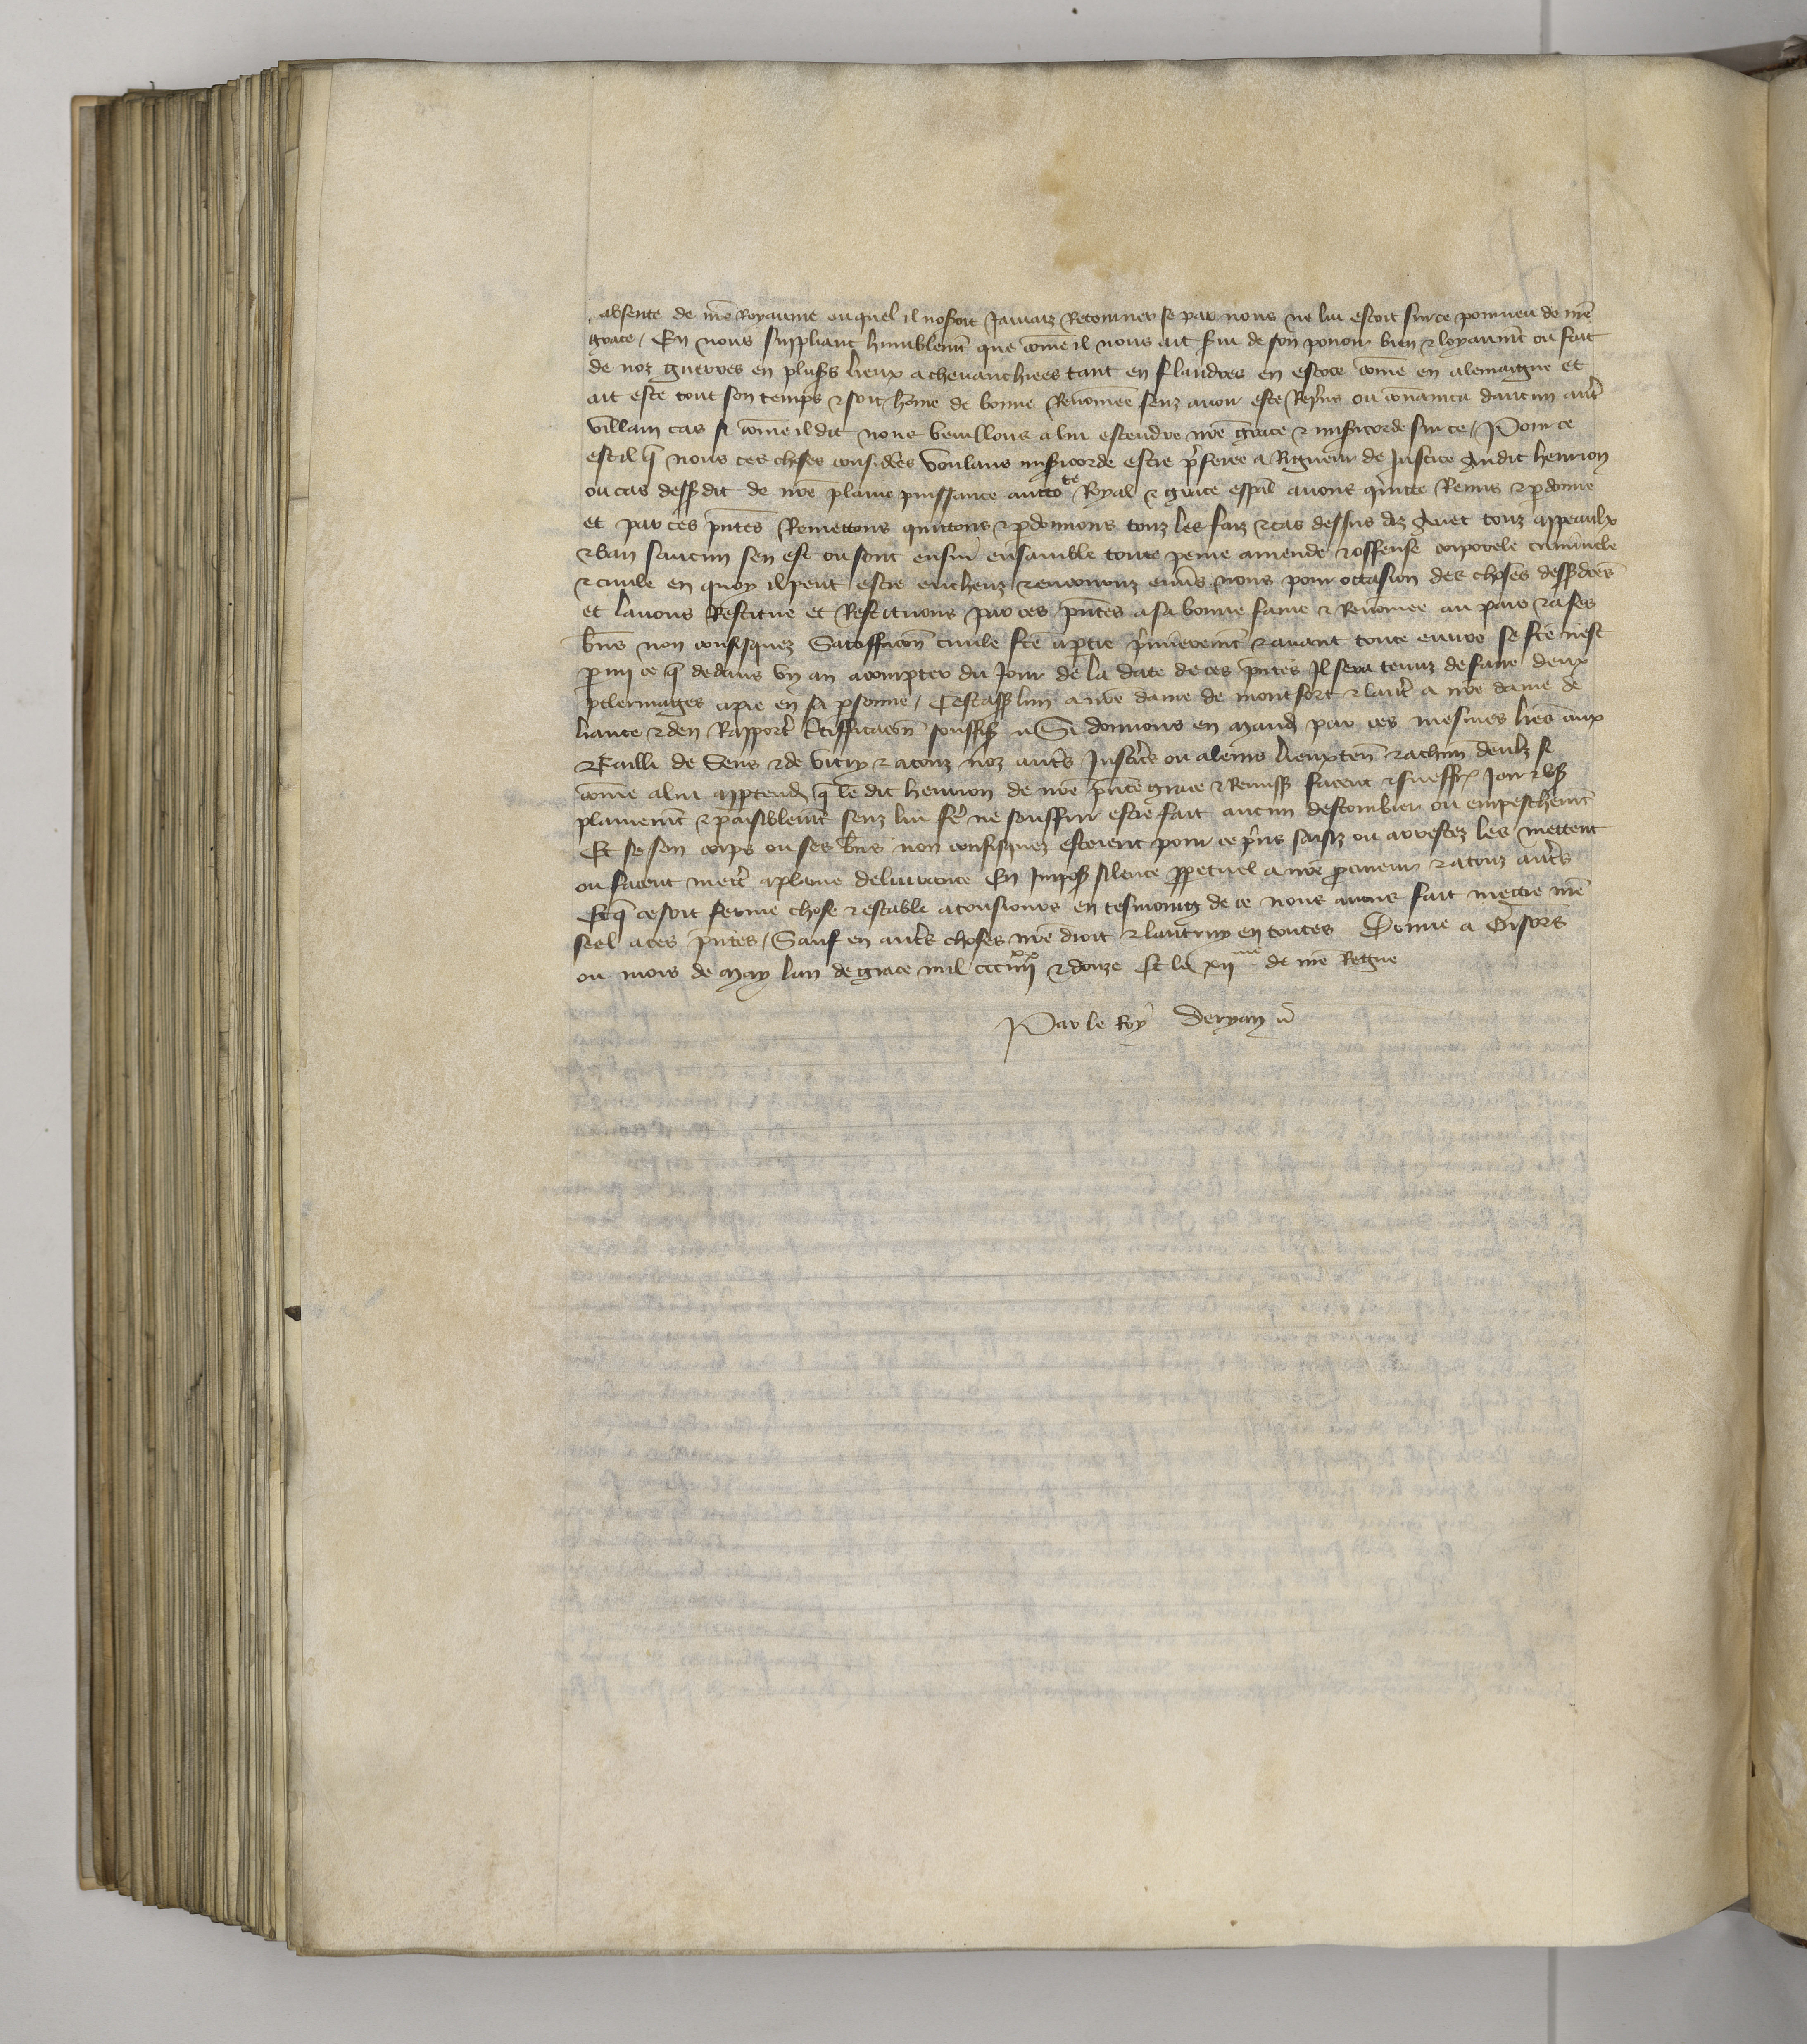 absente de nrē Royaume ouquel il nosoit Jamaiz Retourner se par nous ne lui estoit sur ce pourueu de nrē
grace / En nous suppliant humblemt̄ que com̄e il nous ait serui de son pouoir bien & loyaumt̄ ou fait
de noz guerres en plus̄s lieux a cheuauchiees tant en flandres en escoce com̄e en alemaigne et
ait este tout son temps & soit hom̄e de bonne Renom̄ee senz auoir este Rep̄ns ou conuaincu daucun autr̄
villain cas si com̄e il dit nous veuillons a lui estendre nrē grace & mis̄icorde sur ce / Pour ce
est il q̄ nous ces choses consider̄s voulans mis̄icorde estre p̄feree a Rigueur de Justice Audit henrion
ou cas dess̄ dit de nrē plaine puissance auctote Royal & grace esp̄al auons quitte Remis & p̄donne
et par ces p̄ntes Remettons quittons & p̄donnons touz les faiz & cas dessus diz Auec touz appeaulx
& ban saucun sen est ou sont ensui ensamble toute peine amende & offense corporele criminele
& ciuile en quoy il peut estre encheuz & encouruz enuūs nous pour occasion des choses dess̄dc̄es
et lauons Restitue et Restituons par ces p̄ntes a sa bonne fame & Renom̄ee au pais & a ses
bn̄s non confisquez Satiffacōn ciuile fcē a p̄tie p̄mieremt̄ & auant toute euure se fcē nest
p̄mi ce q̄ dedans vn an a compter du Jour de la date de ces p̄ntes Il sera tenuz de faire deux
pelerinages a pie en sa p̄sonne / Cest ass̄ lun a nrē dame de montfort & lautr̄ a nrē dame de
liance & den Rapport̄ Certifficacōn souffis̄ Si donnons en mand̄ par ces mesmes lr̄es aux
Bailli de Sens & de vitry & a touz noz autr̄s Justicīs ou a leurs lieuxten̄ & a chun̄ deulx si
com̄e a lui app̄tend̄ q̄ le dit henrion de nrē p̄nte grace & Remiss̄ facent & sueff̄r Jouir & vs̄
plainemt̄ & paisiblemt̄ senz lui fē ne souffrir estre fait aucun destourbier ou empeschemt̄
Et se son corps ou ses bn̄s non confisquez estoient pour ce p̄ns saisiz ou arrestez les mettent
ou facent mettr̄ a plaine deliurance En Impos̄ silence p̄petuel a nrē p̄cureur & a touz autr̄s
Et q̄ ce soit ferme chose & estable a tousiours en tesmoing de ce nous auons fait mettre nrē
seel a ces p̄ntes / Sauf en autr̄s choses nrē droit & lautruy en toutes Donne a Gisors
ou mois de may lan de grace mil ccc iiiixx & douze Et le xiime de nrē Regne
Par le Roy Deryan